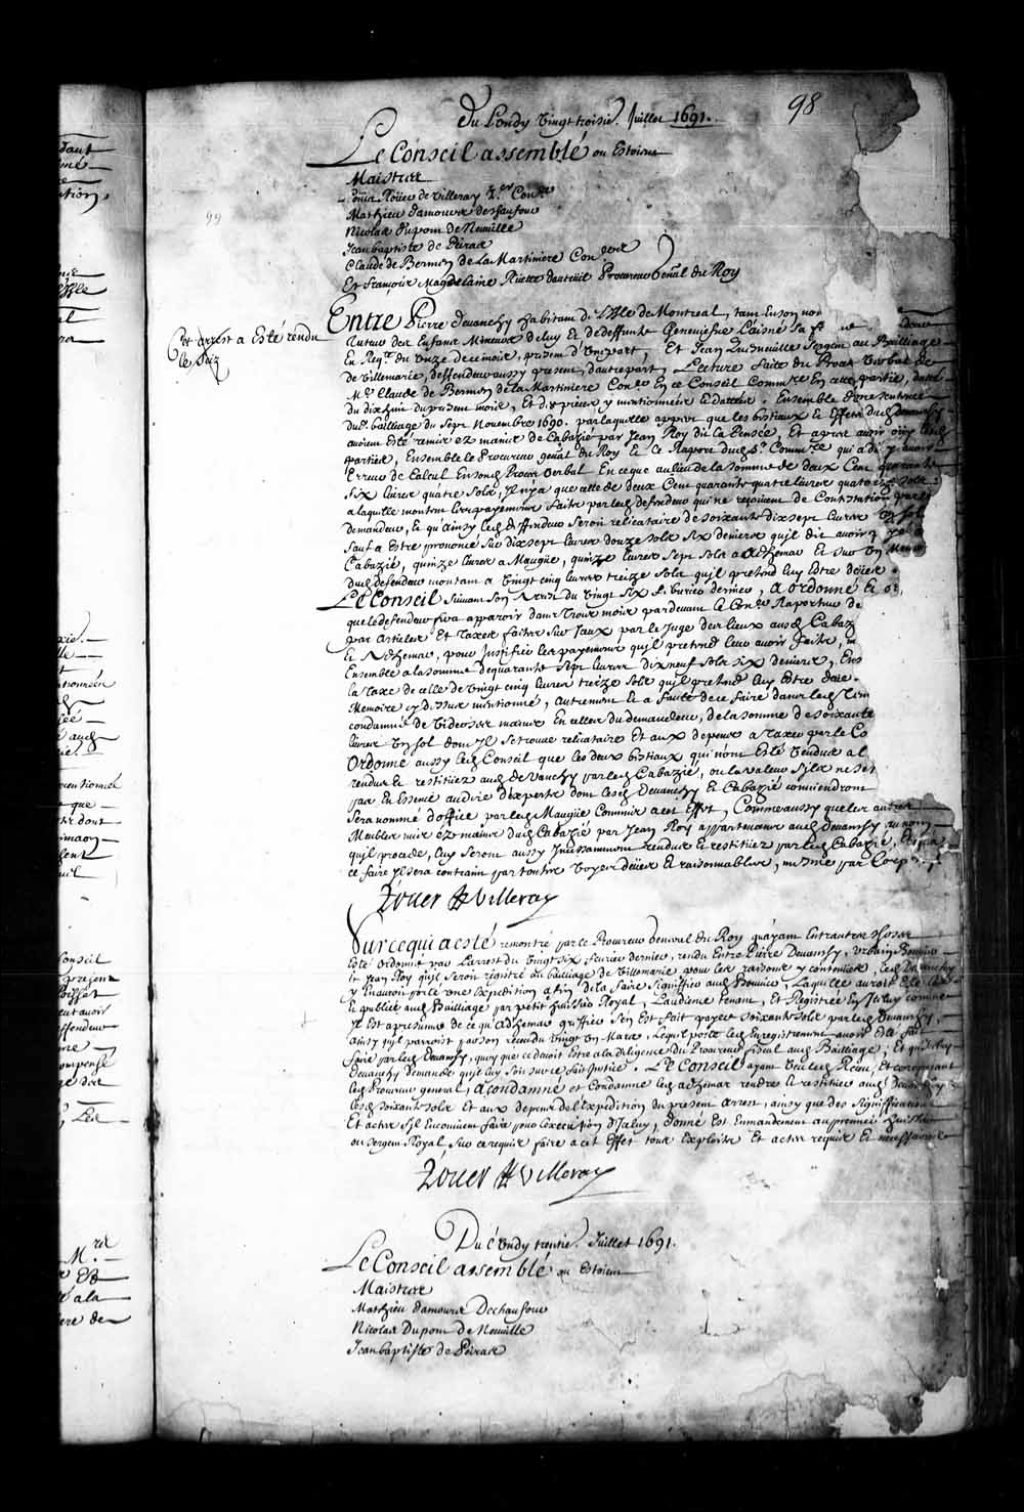 98
Du Lundy Vingt troisie. Juillet 1691.
Le Conseil assemblé ou Estoient
Maistres
Louis Roüer de Villeray 1er Coner
Mathieu damours deschaufour
Nicolas dupont de Neuuille
Jean baptiste de Peiras
Claude de Bermen de La Martiniere Coners
Et françois Magdelaine Ruette dauteüil Procureur General du Roy
99
Cet arrest a Esté rendu
le Seiz
Entre Pierre devanchy habitant de L'Isle de Montreal, tant En son nom
Tuteur des Enfans Mineurs de luy Et de deffunte Geneviefve Laisné sa fe
En Reqte. du Unze decembre, present d'Une part, Et Jean Quenneuille Sergent au Bailliage
de Villemarie, deffendeur aussy present, d'autre part, Lecture faite du Procez Verbal de
Me. Claude de Bermen de la Martiniere Coner En ce Conseil Commre En cette partie, datté
du dix huit du present mois, Et des pieces y mentionnées & dattées. Ensemble d'une Sentence
dud. bailliage du Sept Novembre 1690. par laquelle appert que les bestiaux & Effets dud. devanchy
avoient Esté remis ez mains de Cabazié par Jean Roy dit la Pensée, Et aprez avoir oüy lesd.
parties, Ensemble le Procureur genal du Roy & Le Raport dud. Sr. Commre qui a dit y avoir
Erreur de Calcul En sond. Procez Verbal En ce que au lieu de la somme de deux Cent quarante
Six livres quatre sols, Il n'y a que celle de deux Cent quarante quatre livres quatorze sols
a laquelle montent les payemens faits par led. defendeur qui ne reçoivent de Contestation par le
demandeur, & qu'ainsy led. deffendeur seroit relicataire de soixante dix sept livres Un sol
sauf a Estre prononcé sur dix sept livres douze sols six deniers qu'il dit avoir payé a
Cabazié, quinze livres a Maugüe, quinze livres sept sols a Adhemar & sur Un Memoire
dud. defendeur montant a Vingt cinq livres treize sols qu'il pretend luy Estre deües.
Le Conseil suivant son Arrest du Vingt Six febvrier dernier, A Ordonné &
que le defendeur fera apparoir dans Trois mois pardevant le Coner Raporteur de
par articles Et Taxes faites sur Iceux par le Juge des lieux ausd. Cabaz
& Adhemar, pour Justifier les payemens qu'il pretend leur avoir faits,
Ensemble a la somme de quarante sept livres dix neuf sols six deniers, Ens
la Taxe de celle de Vingt cinq livres treize sols qu'il pretend luy Estre deüe.
Memoire cy dessus mentionné, autrement & a faute de ce faire dans led. Tem
condamné de Vider ses mains En celles du demandeur, de la somme de soixante
livres Un sol dont Il se trouve relicataire Et aux depens a taxer par le Co
Ordonne aussy led. Conseil que les deux bestiaux qui n'ont Esté Vendus al
rendus & restituez aud. devanchy par led. Cabazié, ou la valeur s'ils ne s
par En Essence au dire d'experts dont lesd. devanchy & Cabazié conviendront
sera nommé d'office par led. Maugüe Commis a cet Effet, Comme aussy que les autres
Meubles mis ez mains dud. Cabazié par Jean Roy appartenans aud. devanchy au nom
qu'il procede, luy seront aussy Incessamment rendus & restituez par led. Cabazié, Et qu'a
ce faire Il sera contraint par toutes Voyes deües & raisonnables, mesme par Corps
Roüer de Villeray
Sur ce qui a esté remontré par le Procureur General du Roy qu'ayant Entr'autres choses
Esté Ordonné par L'arrest du Vingt six fevrier dernier, rendu Entre Pierre Devanchy, Urbain Bouvier
& Jean Roy qu'il seroit registré au bailliage de Villemarie pour les raisons y contenües, led. Devanchy
y Enauroit porté Une Expedition afin de la faire Signiffier aud. Bouvier, Laquelle auroit Esté leüe
& publiée aud. Bailliage par petit huissier Royal, L'audience tenant, Et Registrée En Iceluy comme
Il Est a presumer de ce qu'Adhemar greffier s'en Est fait payer soixante sols par led. Devanchy,
ainsy qu'il paroist par son receu du Vingt un Mars, Lequel porte led. Enregistrement avoir Esté fait
faire par led. Devanchy, quoy que ce devoit Estre a la diligence du Procureur fiscal aud. Bailliage; Et qu'il led.
Devanchy demande qu'il luy soit sur ce fait Justice. Le Conseil ayant Veu led. Receu, Et ce requerant
led. Procureur general, a condamné et Condamne led. adhemar rendre & restituer aud. Devanchy
lesd. soixante sols Et aux depens de l'expedition du present arrest, ainsy que des Significations
Et actes s'il Enconvient faire pour l'execution d'Iceluy, donné Est En mandement au premier huissier
ou sergent Royal, sur ce requis faire a cet Effet tous Exploits Et actes requis & necessaires
Roüer de Villeray
Du Lundy trentie. Juillet 1691.
Le Conseil assemblé ou Estoient
Maistres
Mathieu damours Dechaufour
Nicolas Dupont de Neuuille
Jean baptiste de Peiras